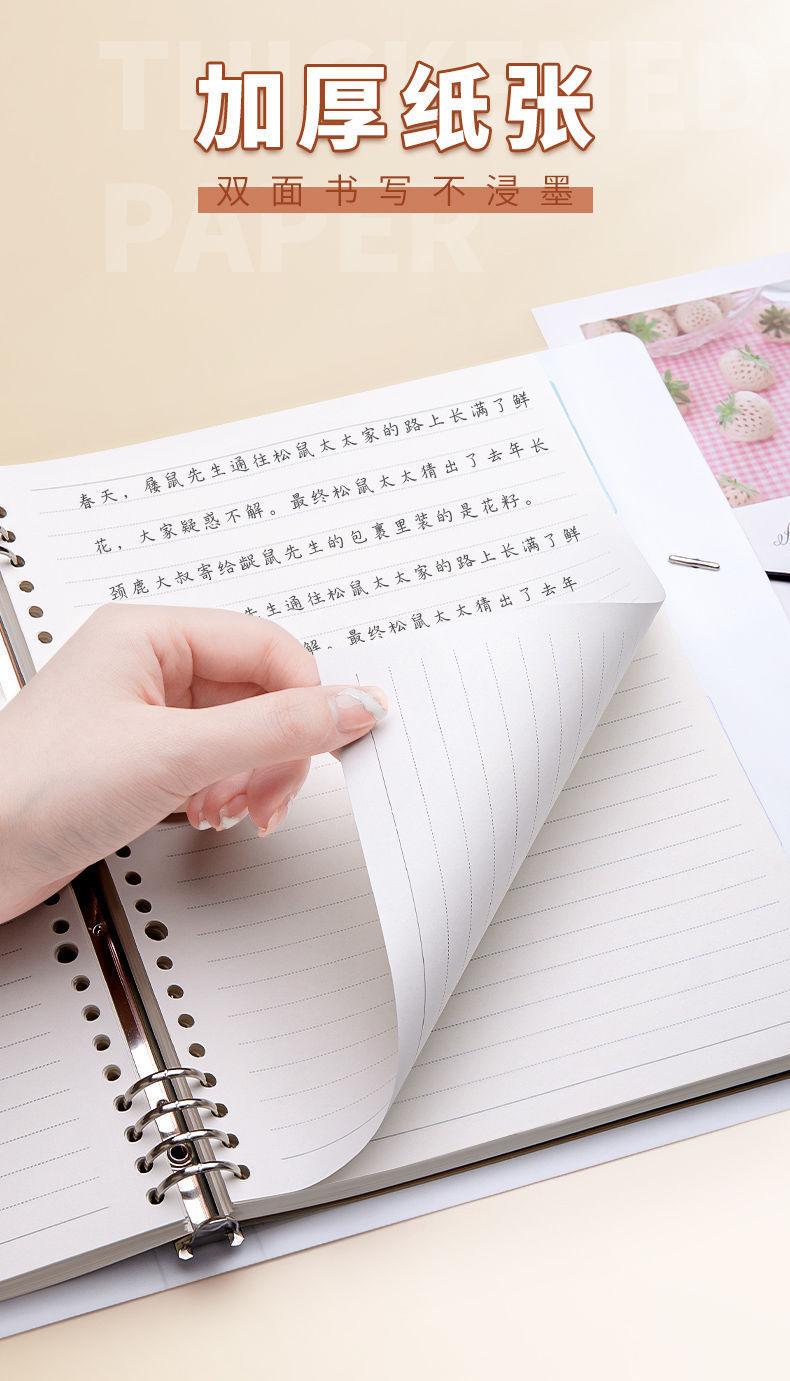 THICKENED
加厚纸张
双面书写不浸墨
PAPER
春天，屦鼠先生通往松鼠太太家的路上长满了鲜
花，大家疑惑不解。最终松鼠太太猜出了去年长
颈鹿大叔寄给鼹鼠先生的包裹里装的是花籽。
先生通往松鼠太太家的路上长满了鲜
解。最终松鼠太太猜出了去年